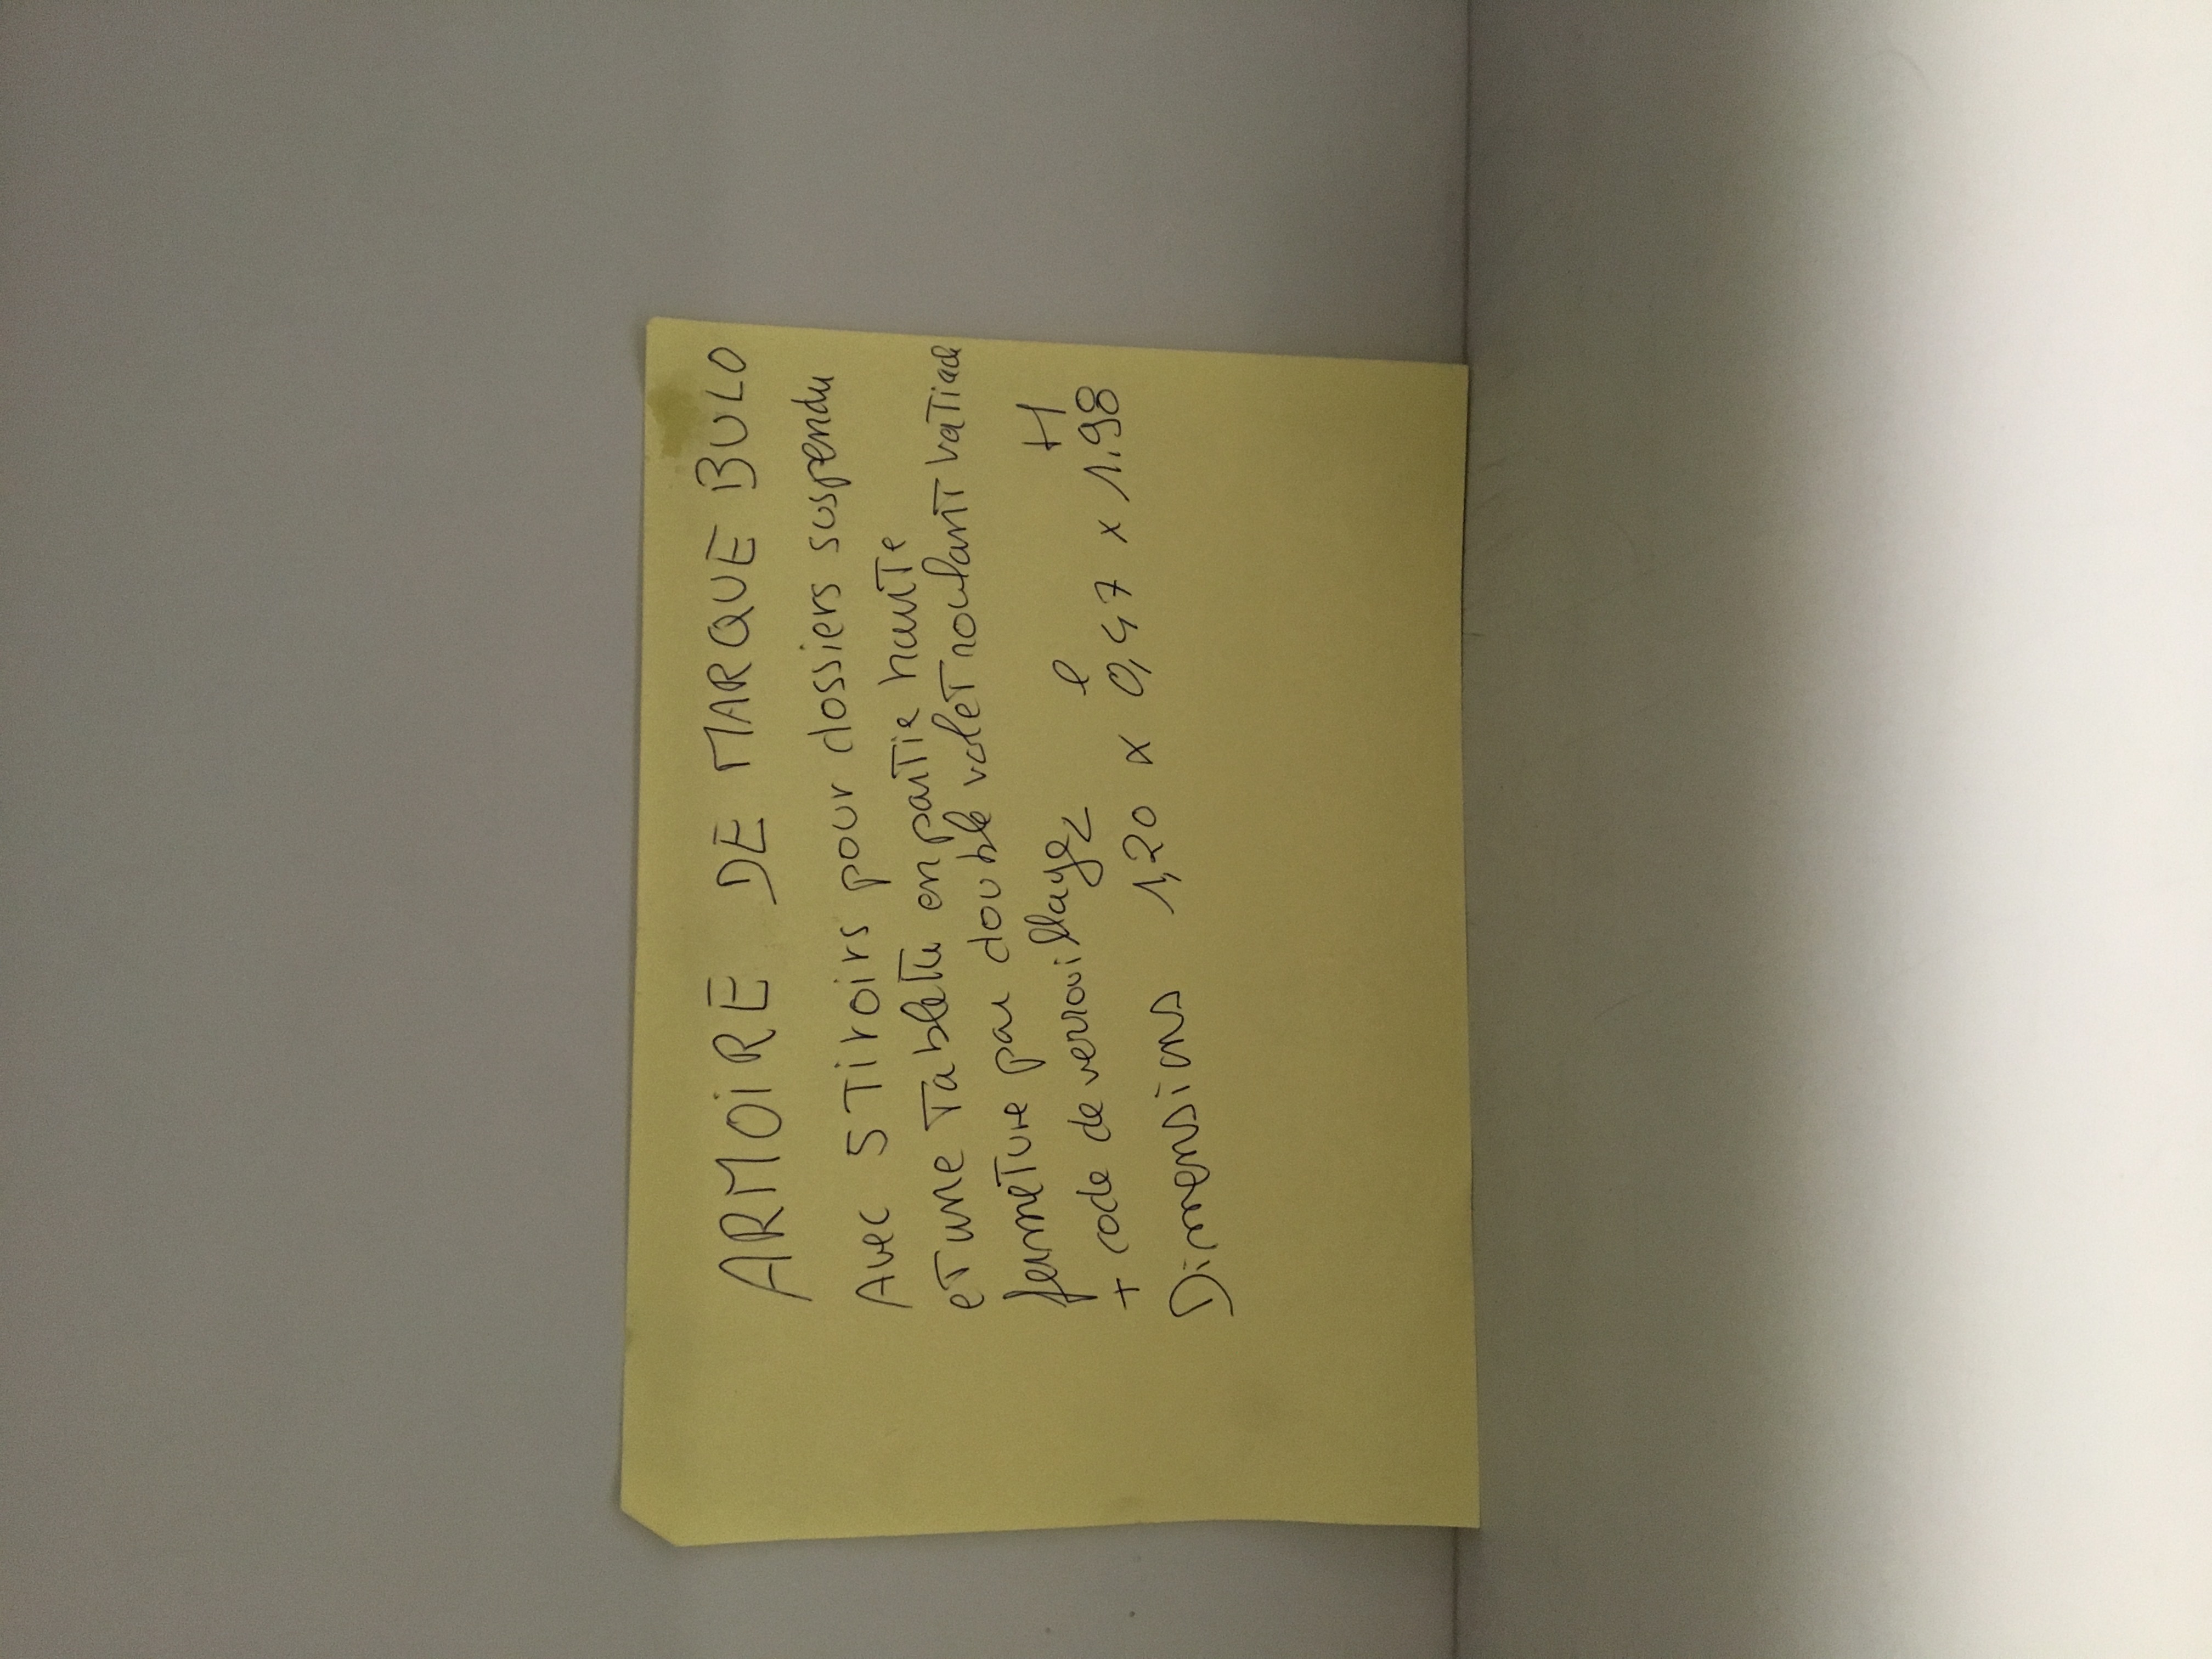 ARMOIRE DE MARQUE BULO
Avec 5 Tiroirs pour dossiers suspendu
eT une Tablette en partie haute
fermeture par double volet roulant
+ code de verrouillage
L l H
Dimensions 1,20 x 0,47 x 1.98